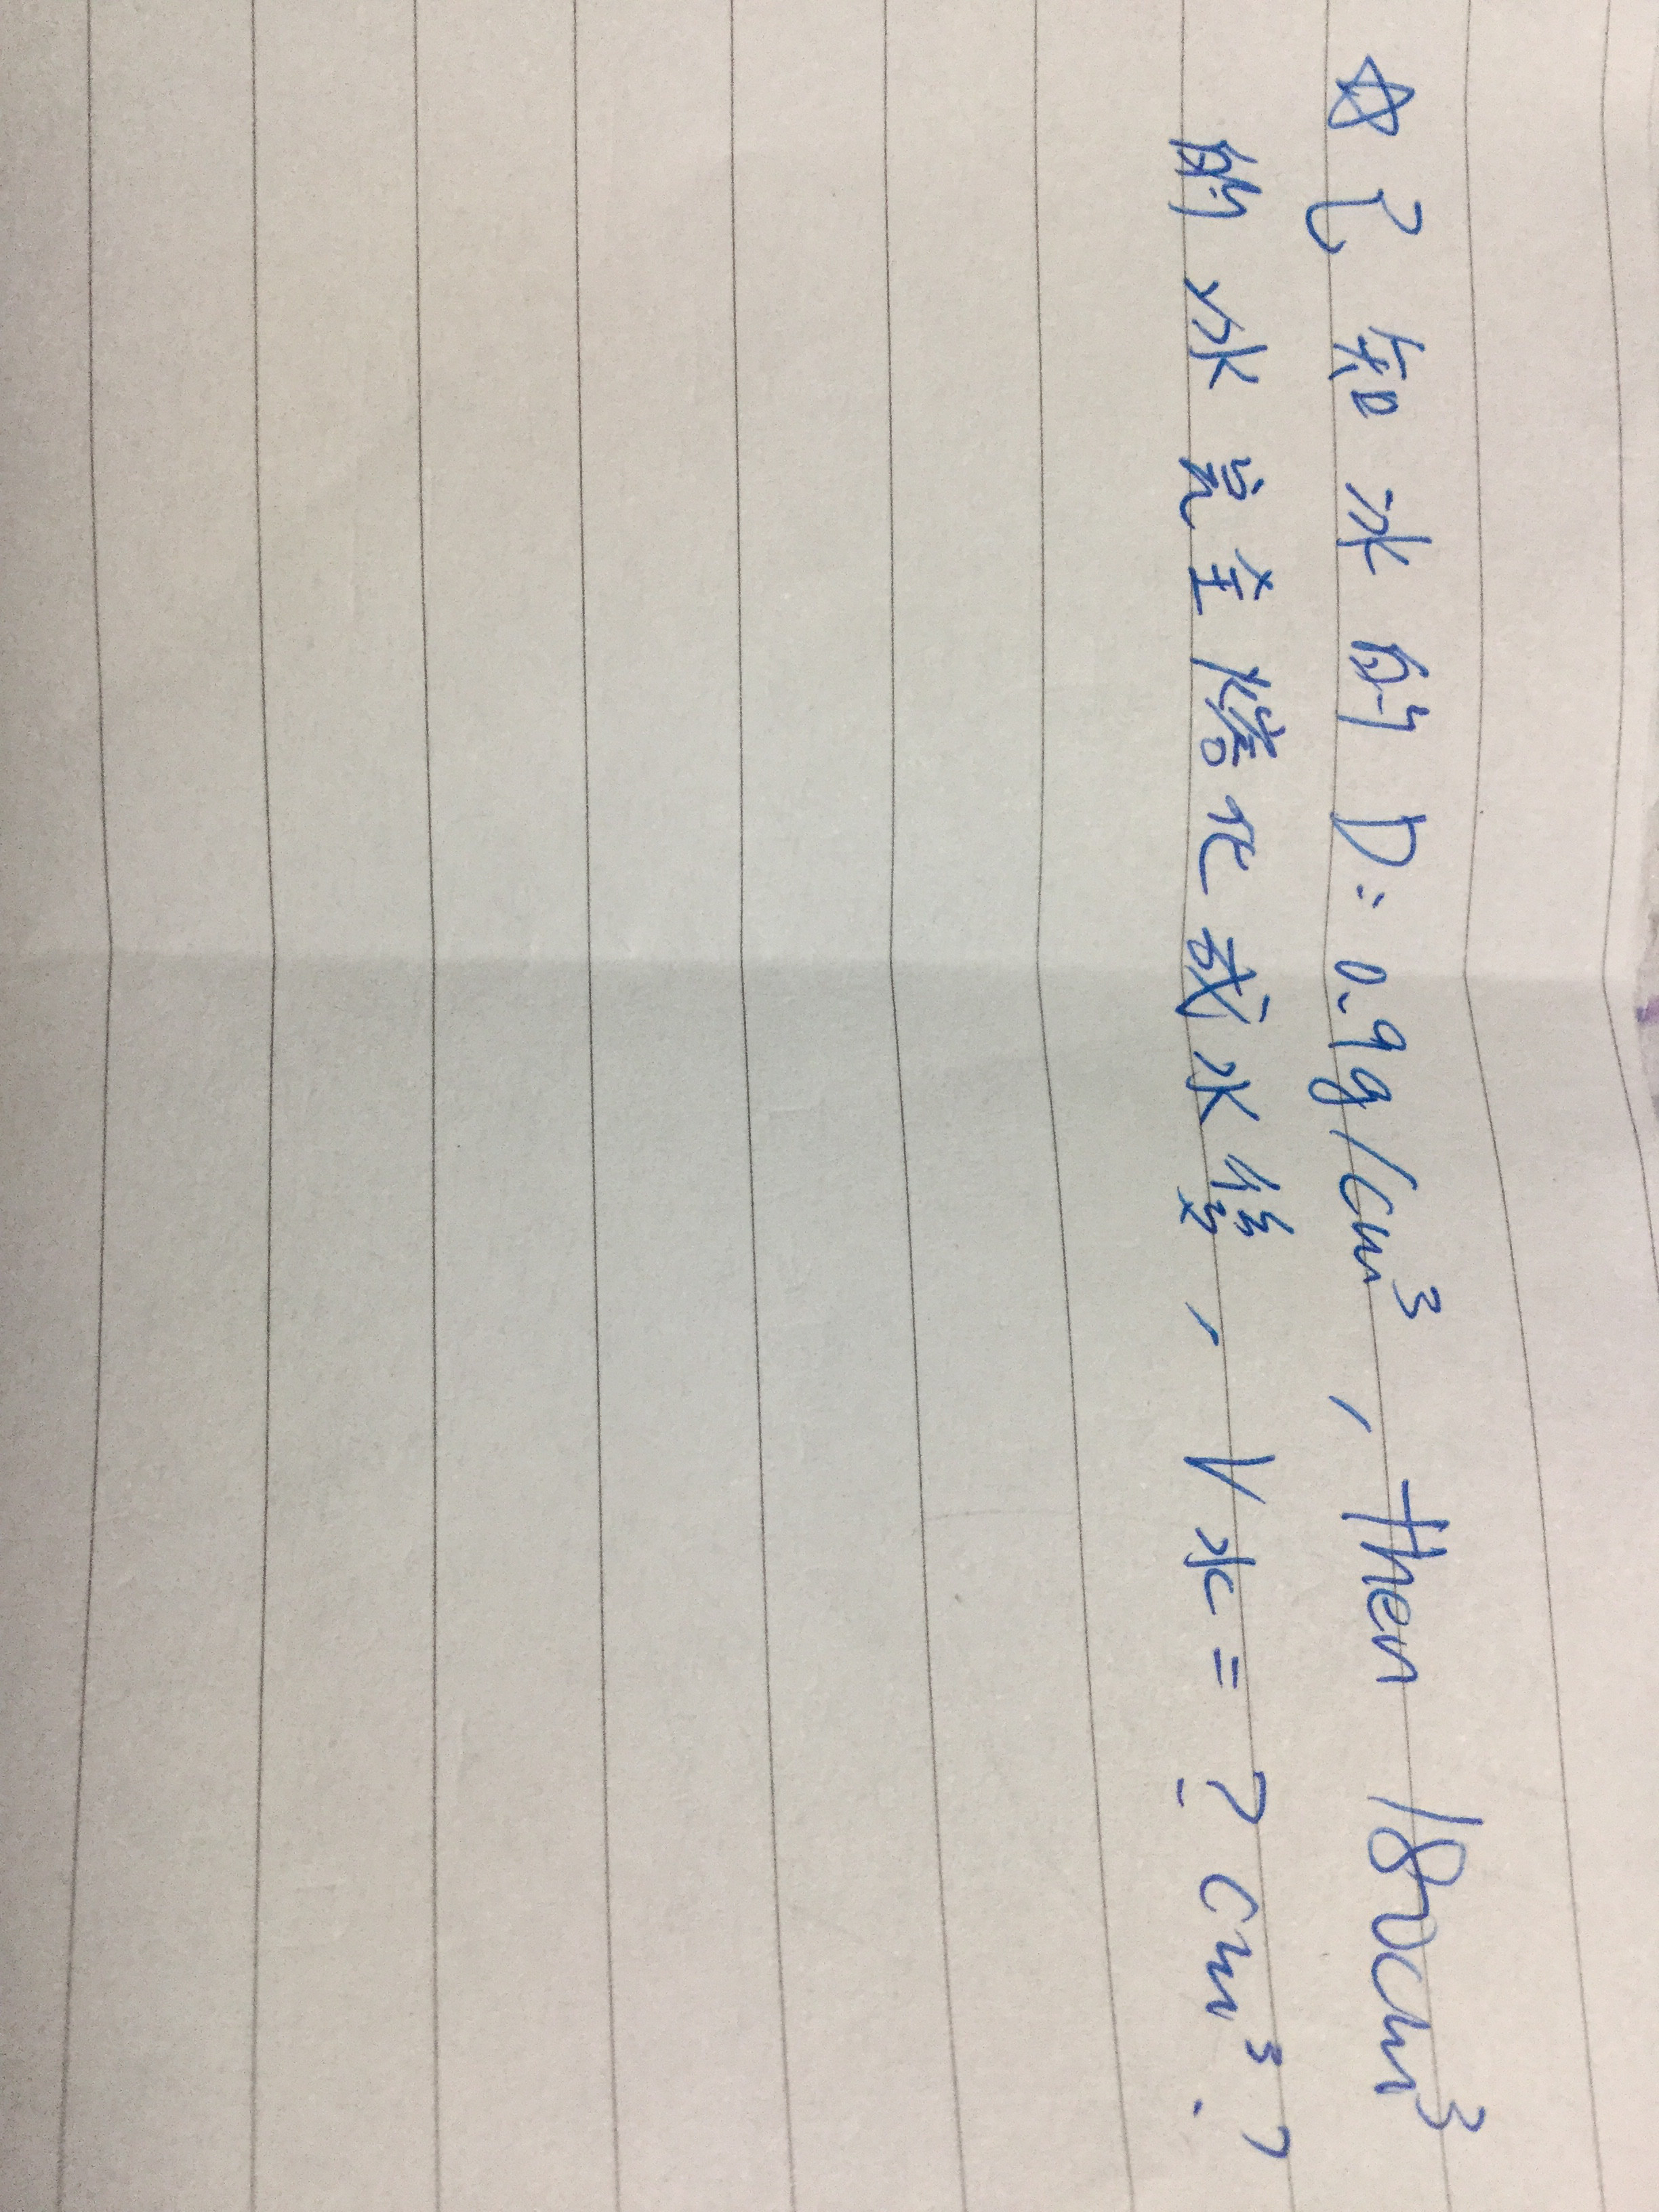 ☆已知冰的D=0.9g/cm³, then 180cm³
的冰完全熔化成水后, V水=?cm³.?